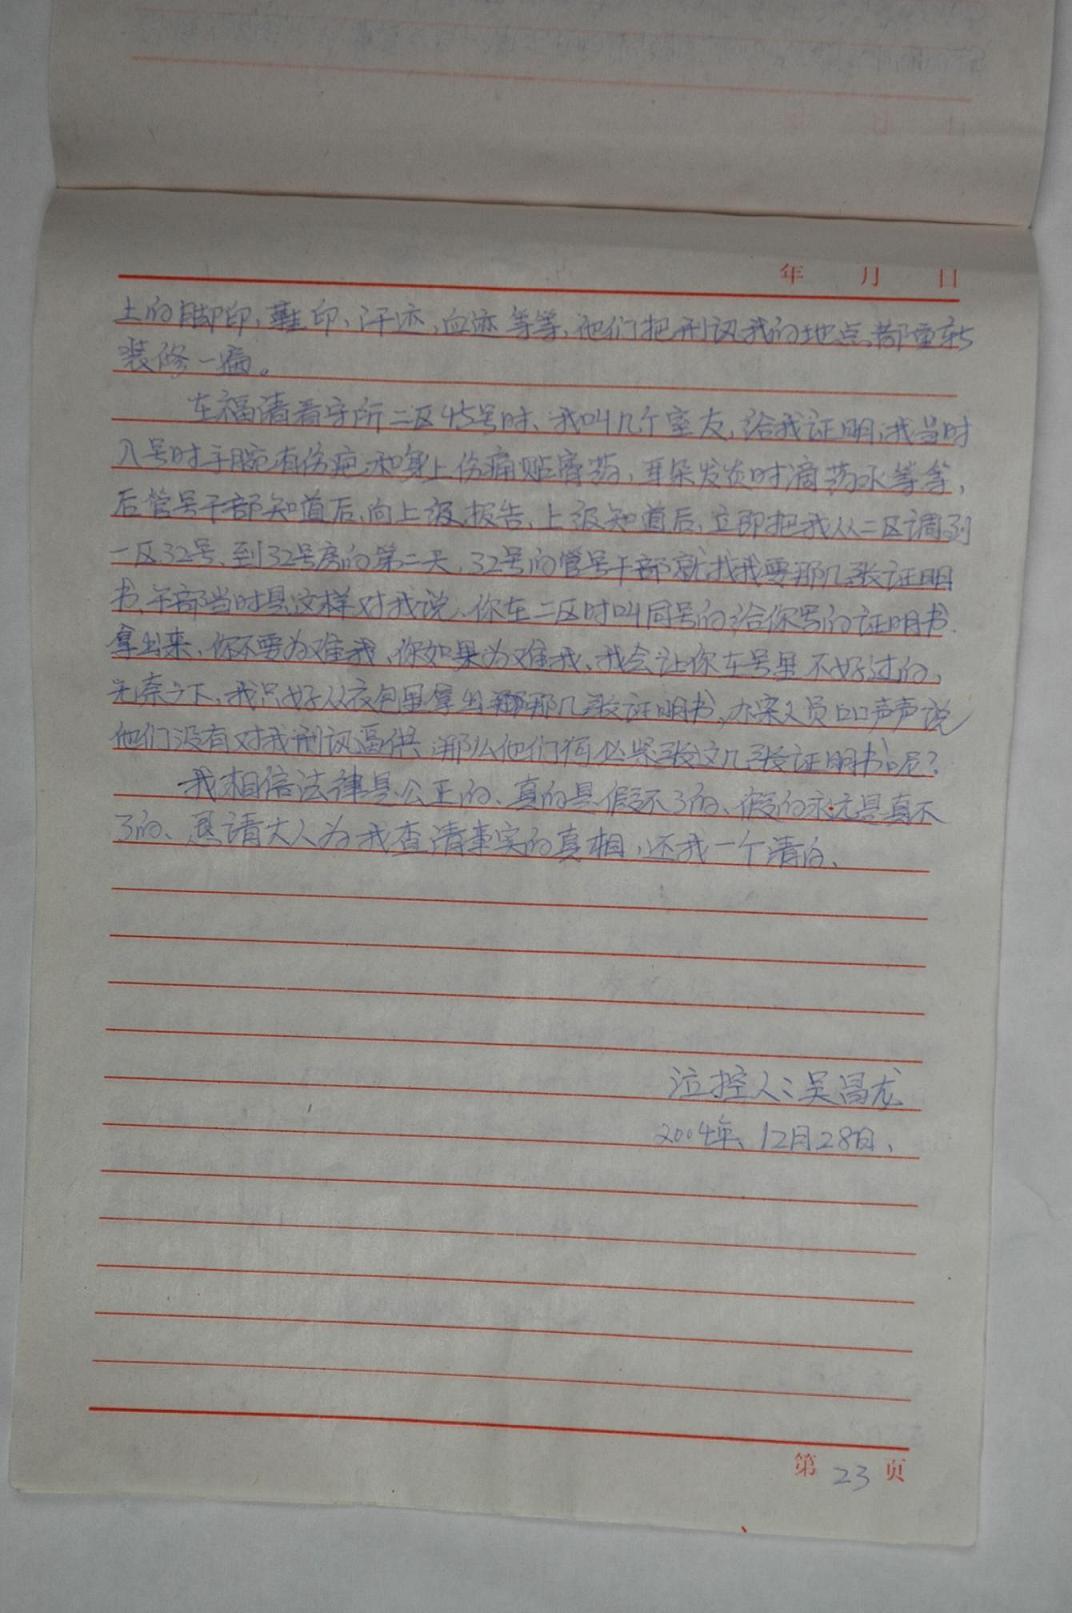 年 月 日
上的脚印，鞋印、汗迹，血迹等等，他们把刑讯我的地点都重新
装修一遍。
在福清看守所二区45号时、我叫几个室友，给我证明，我当时
入号时手腕有伤疤和身上伤痛贴膏药，耳朵发炎时滴药水等等，
后管号干部知道后，向上级报告，上级知道后，立即把我从二区调到
一区32号、到32号房的第二天，32号的管号干部就找我要那几张证明
书，干部当时是这样对我说、你在二区时叫同号的给你写的证明书、
拿出来，你不要为难我，你如果为难我，我会让你在号里不好过的，
无奈之下，我只好从衣包里拿出那几张证明书，办案人员口口声声说
他们没有对我刑讯逼供，那么他们何必紧张这几张证明书呢？
我相信法律是公正的、真的是假不了的、假的永远是真不
了的、恳请大人为我查清事实的真相，还我一个清白、
泣控人：吴昌龙
2004年、12月28日、
第 23 页